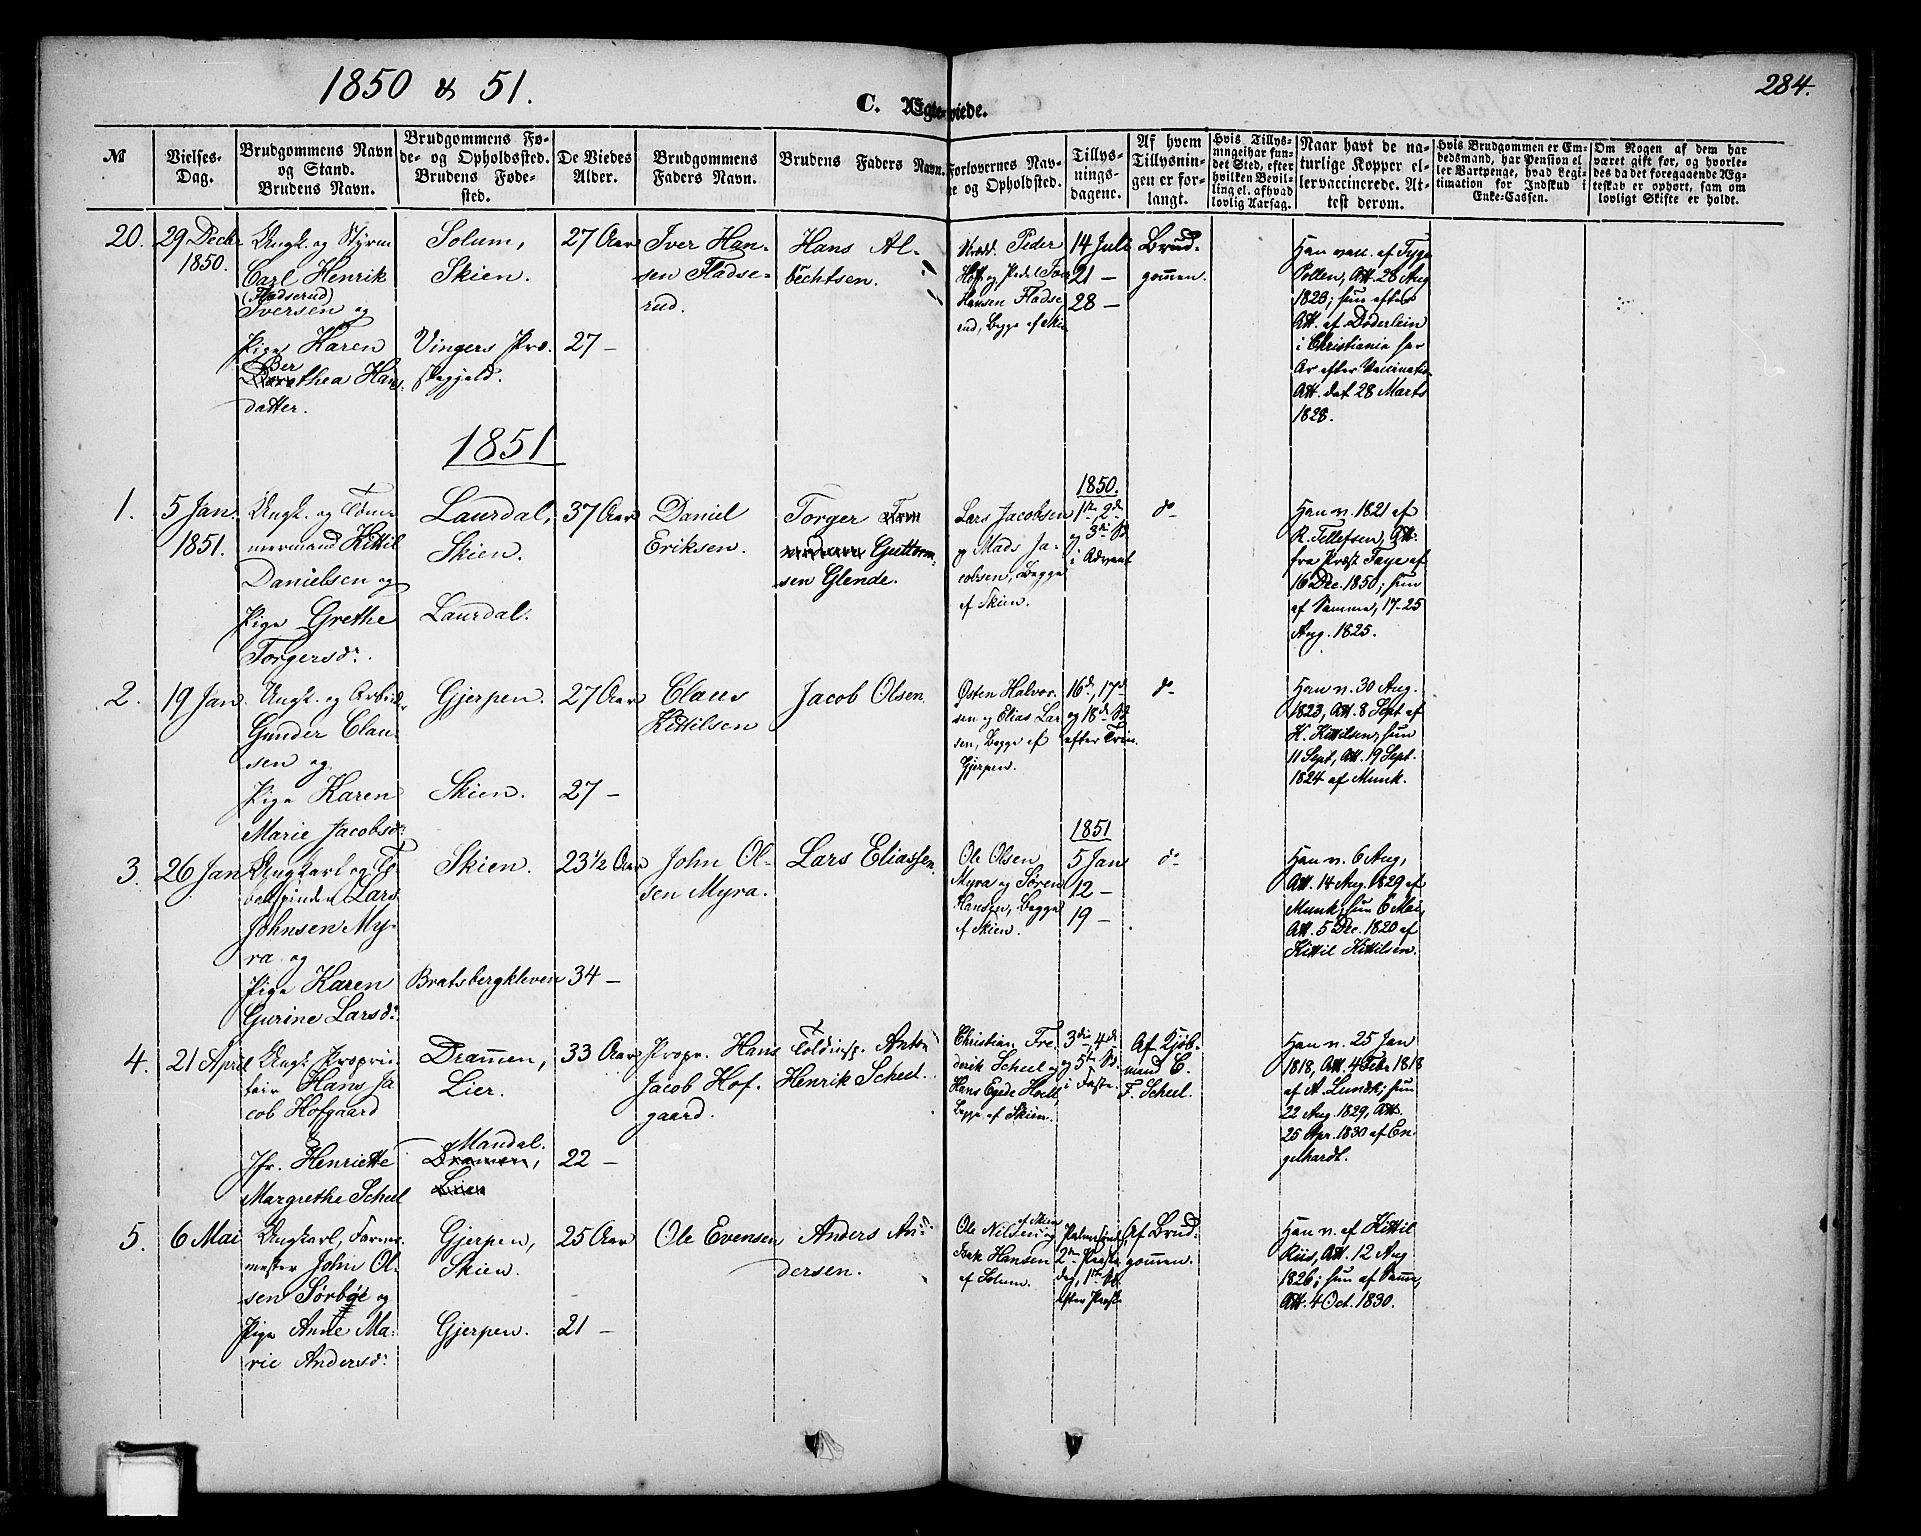 1850 & 51.
284.
C. Ægteviede.
№
Vielses-
Dag.
Brudgommens Navn
og Stand.
Brudens Navn.
Brudgommens Fø-
de- og Opholdssted.
Brudens Føde-
sted.
De Viedes
Alder.
Brudgommens
Faders Navn.
Brudens Faders Navn.
Forlovernes Nav-
ne og Opholdsted.
Tillys-
nings-
dagene.
Af hvem
Tillysnin-
gen er for-
langt.
Hvis Tillys-
ningel har fun-
det Sted, efter
hvilken Bevil-
ling el. afhvad
lovlig Aarsag.
Naar havt de na-
turlige Kopper el-
ler vaccinerede. At-
test derom.
Hvis Brudgommen er Em-
bedsmand, har Pension el
ler Vartpenge, hvad Legi-
timation for Indskud i
Enke-Cassen.
Om Nogen af dem har
været gift før, og hvorle-
des da det foregaaende Æg-
teskab er ophørt, sam om
lovligt Skifte er holdt.
20.
29 Decb.
1850.
Ungk. og Styrm
Carl Henrik
(Fladserud)
Iversen og
Pige Karen
Ber
Dorothea Hans-
datter.
Solum,
Skien.
Vingers Præ-
stegjeld.
27 Aar
27 —
Iver Han-
sen Fladse-
rud.
Hans Al-
bechtsen.
Peder
Hoff og
Hansen Fladse
rud, Begge af Skie
14 Juli
21 —
28 —
Brud-
gommen.
Han vacc. af Tyge
Pollen, Att. 28 Aug
1823; hun efter
Att. af Døderlein
i Christiania har
Ar efter Vaccinatio
Att. dat 28 Marts
1828.
1851
1.
5 Jan.
1851.
Ungk. og Tøm-
mermand Kittil
Danielsen og
Pige Grethe
Torgersdr.
Laurdal,
Skien.
Laurdal.
37 Aar
Daniel
Eriksen.
Torger
Guttorm-
sen Glende.
Lars Jacobsen
og Mads Ja-
cobsen, Begge
af Skien.
1850.
1ste, 2de
og 3die S
i Advent
do
Han v. 1821 af
R. Tellefsen, Att.
fra Præst Faye af
16 Dec. 1850; hun
af Samme, 17-25
Aug. 1825.
2.
19 Jan
Ungk. og Arbeid.
Gunder Clau-
sen og
Pige Karen
Marie Jacobsdr
Gjerpen.
Skien.
27 Aar
27 —
Claus
Kittilsen
Jacob Olsen
Østen Halvor-
sen og Elias Lar
sen, Begge af
Gjerpen.
16de, 17de
og 18de S
efter Trin.
do
Han v. 30 Aug.
1823, Att. 8 Sept af
K. Kittilsen; hun
11 Sept, Att. 19 Sept.
1824 af Munk.
3.
26 Jan
Ungkarl og To
bakspinder Lars
Johnsen My-
ra og
Pige Karen
Gurine Larsdr
Skien.
Bratsbergkleven
23½ Aar
34 —
John Ol-
sen Myra.
Lars Eliassen.
Ole Olsen
Myra og Søren
Hansen, Begge
af Skien.
1851
5 Jan
12 —
19 —
do
Han v. 6 Aug,
Att. 14 Aug. 1829 af
Munk; hun 6 Mai,
Att. 5 Dec. 1820 af
Kittil Kittilsen.
4.
21 April
Ungk. Proprie
tair Hans Ja
cob Hofgaard
Jfr. Henriette
Margrethe Scheel
Drammen,
Lier.
Mandal.
Drammen,
Lier
33 Aar
22 —
Propr. Hans
Jacob Hof-
gaard.
Toldinsp. Anton
Henrik Scheel.
Christian Fre
derik Scheel og
Hans Egede Hoelt
Begge af Skien.
3die, 4de
og 5te S
i Faste.
Af Kjøb-
mand C.
F. Scheel.
Han v. 25 Jan
1818, Att. 4 Feb. 1818
af A. Lundt; hun
22 Aug. 1829, Att.
25 Apr. 1830 af En-
gelhardt.
5.
6 Mai
Ungkarl, Farve-
mester John Ol-
sen Sørbøe og
Pige Anne Ma-
rie Andersdr
Gjerpen,
Skien.
Gjerpen.
25 Aar
21 —
Ole Evensen
Anders An-
dersen.
af Skien
Ole Nilsen og
Isak Hansen
af Solum.
Palmesønd.
2den Paaske
dag, 1ste S
efter Paaske
Af Brud-
gommen.
Han v. af Kittil
Riis, Att. 12 Aug
1826; hun af Samme,
Att. 4 Oct. 1830.